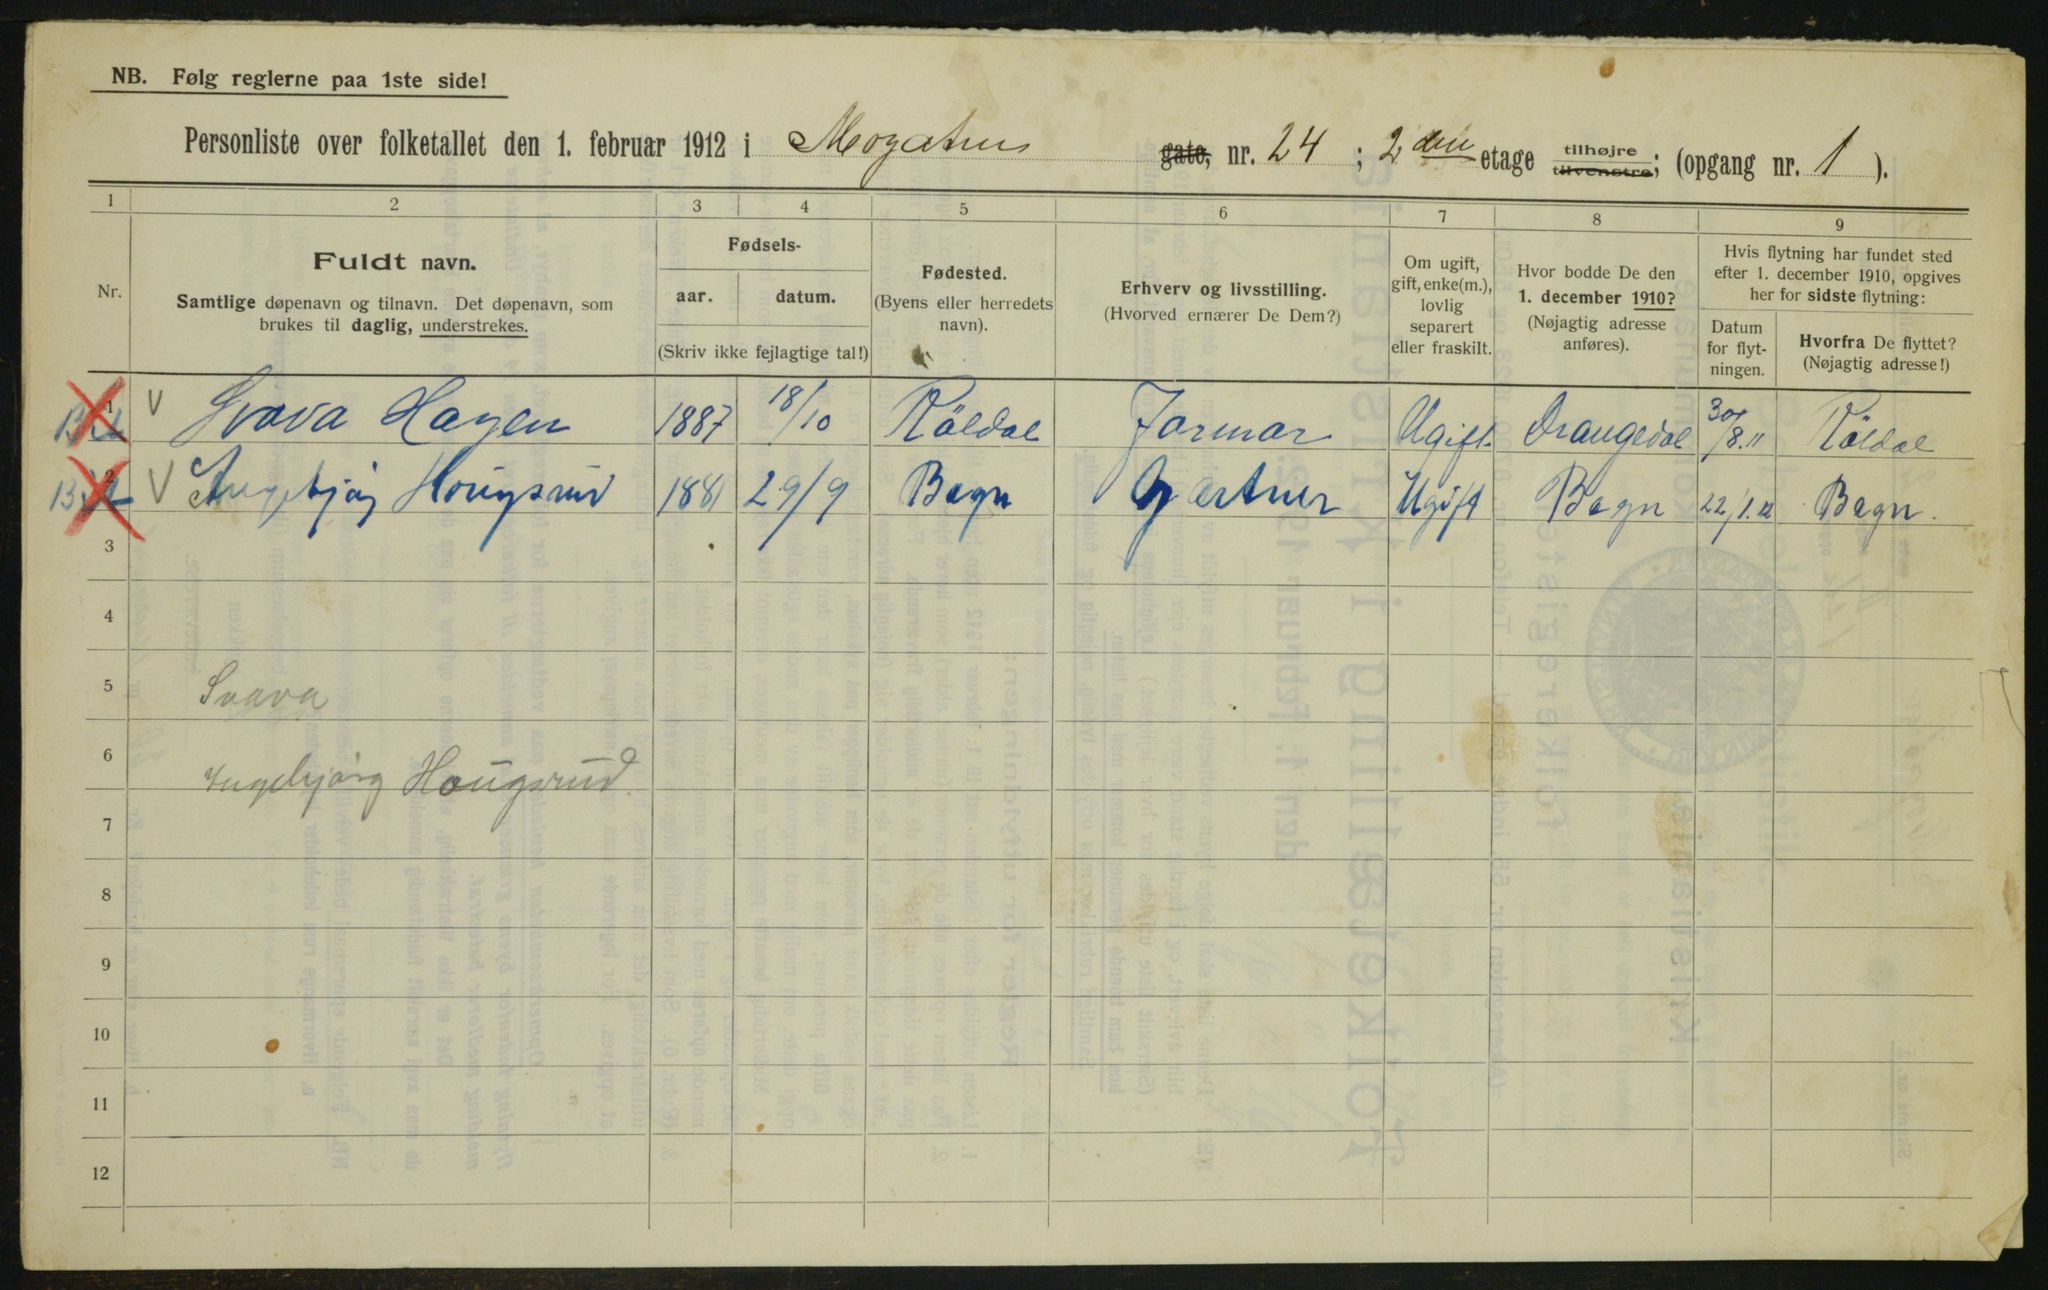 NB. Følg reglerne paa 1ste side!
Personliste over folketallet den 1. februar 1912 i gate, nr. 24 ; 2 den etage tilhøjre tilvenstre; (opgang nr. 1 ).
1 2 3 4 5 6 7 8 9
Nr.
Fuldt navn.
Samtlige døpenavn og tilnavn. Det døpenavn, som
brukes til daglig, understrekes.
Fødsels-
aar. datum.
(Skriv ikke fejlagtige tal!)
Fødested.
(Byens eller herredets
navn).
Erhverv og livsstilling.
(Hvorved ernærer De Dem?)
Om ugift,
gift, enke(m.),
lovlig
separert
eller fraskilt.
Hvor bodde De den
1. december 1910?
(Nøjagtig adresse
anføres).
Hvis flytning har fundet sted
efter 1. december 1910, opgives
her for sidste flytning:
Datum
for flyt-
ningen.
Hvorfra De flyttet?
(Nøjagtig adresse!)
1 V Svava Hagen 1887 18/10 Röldal Ugift Drangedal 30/8.11 Röldal
2 V Ingebjörg Hougsrud 1881 29/9 Bagn Gartner Ugift Bagn 22/1.12 Bagn.
3
4
5 Svava
6
Ingebjörg Hougsrud
7
8
9
10
11
12